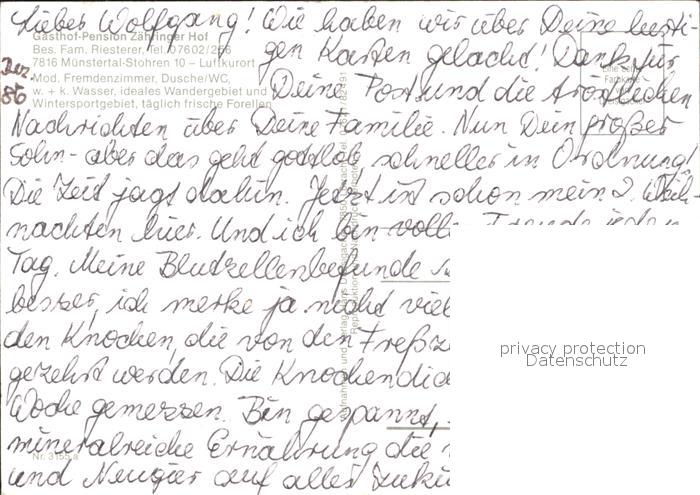 Lieber Wolfgang! Wie haben wir über Deine lusti-
Gasthof-Pension Zähringer Hof
Bes. Fam. Riesterer, Tel. 07602/256
7816 Münstertal-Stohren 10 – Luftkurort
gen Karten gelacht! Dank für
Dez.
86
Mod. Fremdenzimmer, Dusche/WC,
w. + k. Wasser, ideales Wandergebiet und
Wintersportgebiet, täglich frische Forellen
Deine Post und die tröstlichen
Nachrichten über Deine Familie. Nun Dein großer
Sohn - aber das geht gottlob schneller in Ordnung!
Die Zeit jagt dahin. Jetzt ist schon mein 2. Weih-
nachten hier. Und ich bin voll Freude jeden
Tag. Meine Blutzellenbefunde
besser, ich merke ja nicht viel
den Knochen, die von den Freßz
gezehrt werden. Die Knochendic
Woche gemessen. Bin gespannt,
mineralreiche Ernährung die
und Neugier auf alles Zukü
Nr. 3155 a
privacy protection
Datenschutz